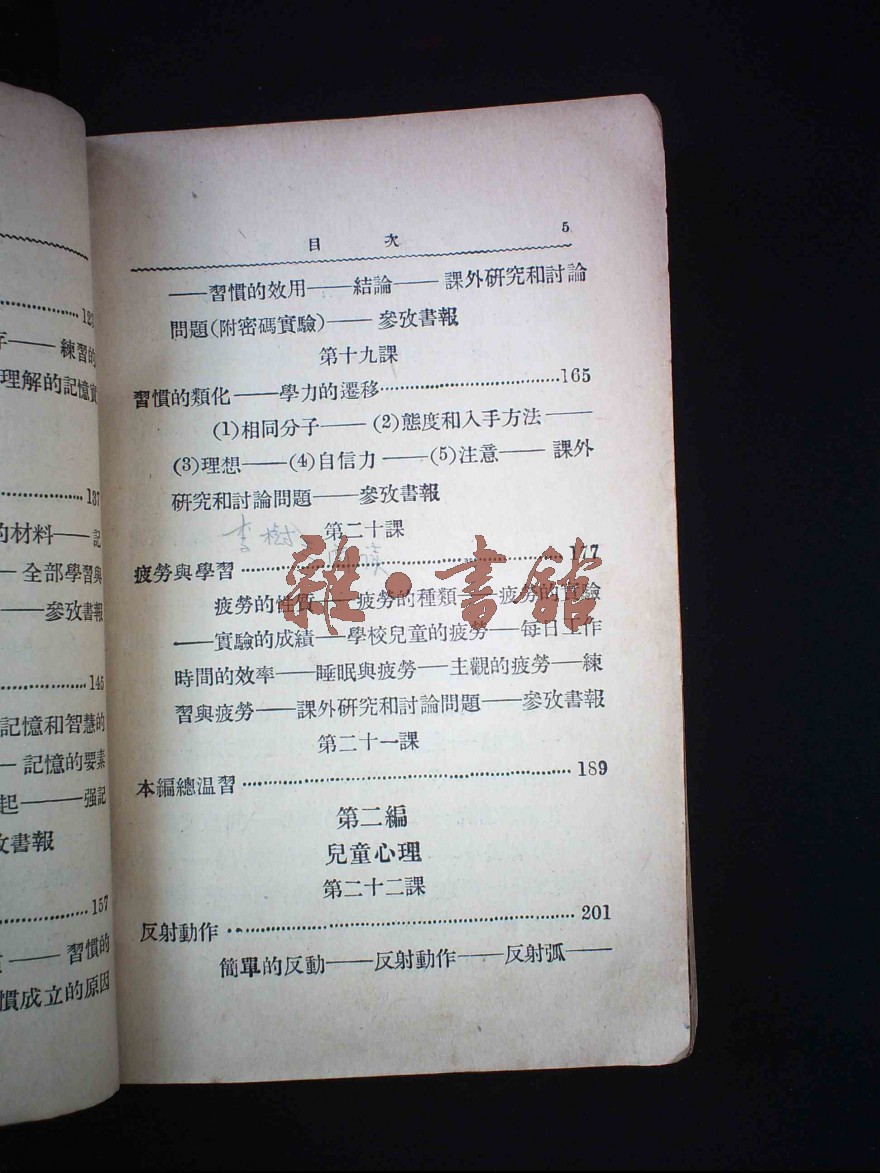 123
存——練習的
理解的記憶實
137
的材料——記
—全部學習與
——參攷書報
145
記憶和智慧的
—記憶的要素
起——强記
攷書報
157
——習慣的
慣成立的原因
目 次 5
——習慣的效用——結論——課外研究和討論
問題(附密碼實驗)——參攷書報
第十九課
習慣的類化——學力的遷移……………………165
(1)相同分子——(2)態度和入手方法——
(3)理想——(4)自信力——(5)注意——課外
研究和討論問題——參攷書報
李樹
第二十課
疲勞與學習……………………177
疲勞的性質——疲勞的種類——疲勞的實驗
——實驗的成績—學校兒童的疲勞—每日工作
時間的效率——睡眠與疲勞—主觀的疲勞—練
習與疲勞——課外研究和討論問題——參攷書報
第二十一課
本編總温習……………………189
第二編
兒童心理
第二十二課
反射動作……………………201
簡單的反動——反射動作——反射弧——
雜·書館